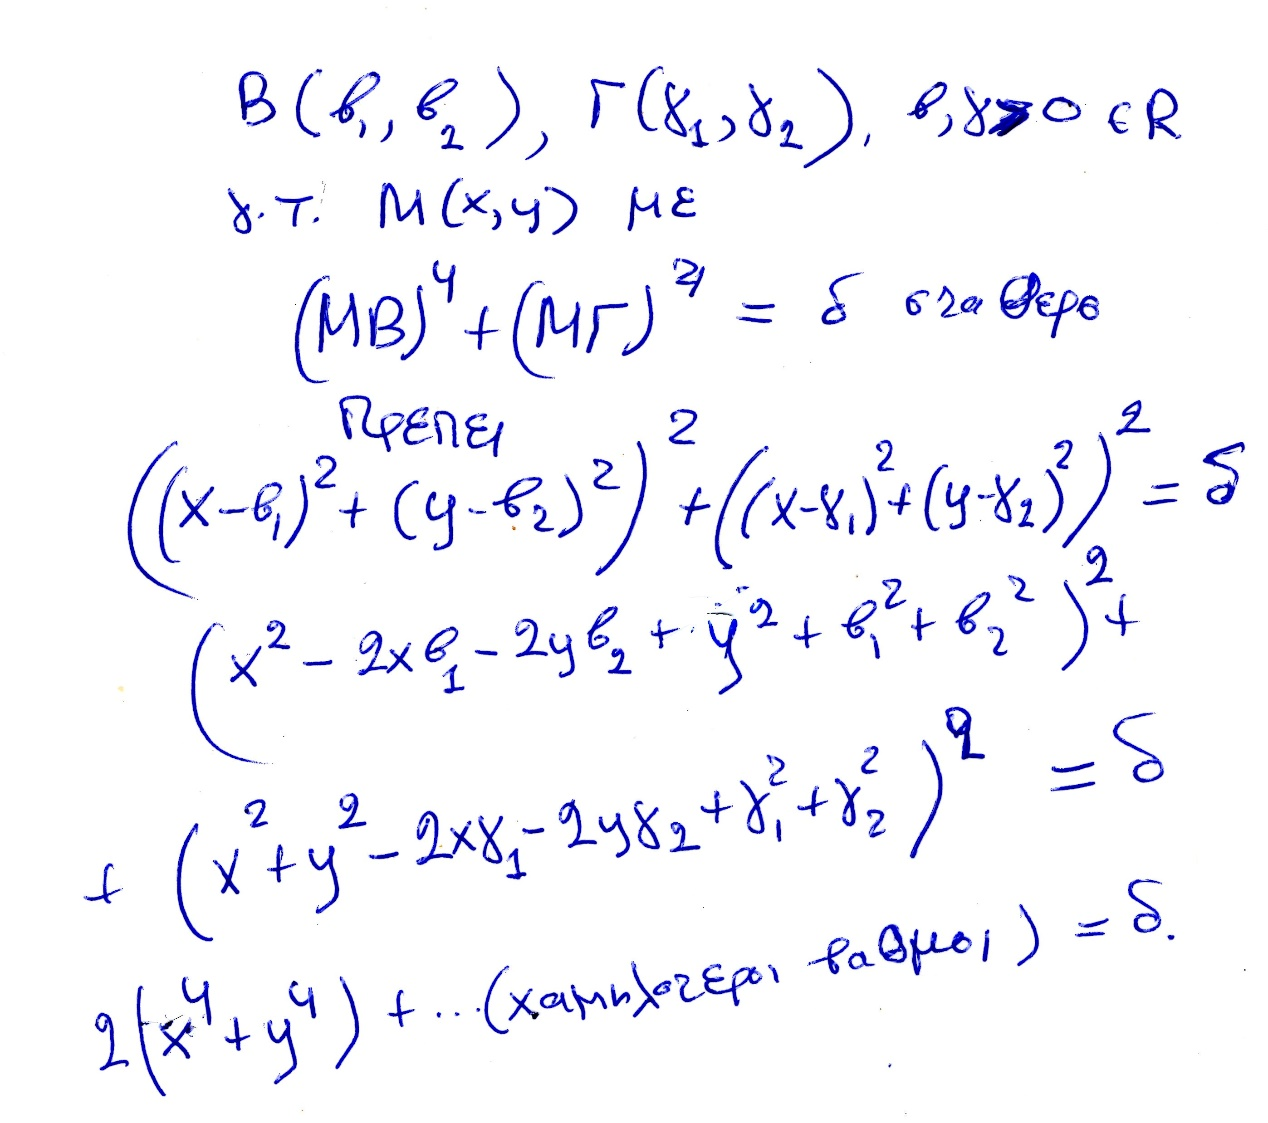 Β(β₁, β₂), Γ(γ₁, γ₂), β,γ>0 ∈ R
γ.τ. Μ(x,y) ΜΕ
(ΜΒ)⁴+(ΜΓ)⁴ = δ σταθερο
Πρεπει
((x-β₁)²+(y-β₂)²)²+((x-γ₁)²+(y-γ₂)²)² = δ
(x²-2xβ₁-2yβ₂+y²+β₁²+β₂²)²+
+ (x²+y²-2xγ₁-2yγ₂+γ₁²+γ₂²)² = δ
2(x⁴+y⁴)+...(χαμηλοτεροι βαθμοι) = δ.